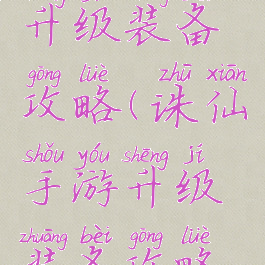 升级装备
gōng lüè zhū xiān
攻略(诛仙
shǒu yóu shēng jí
手游升级
zhuāng bèi gōng lüè
装备攻略